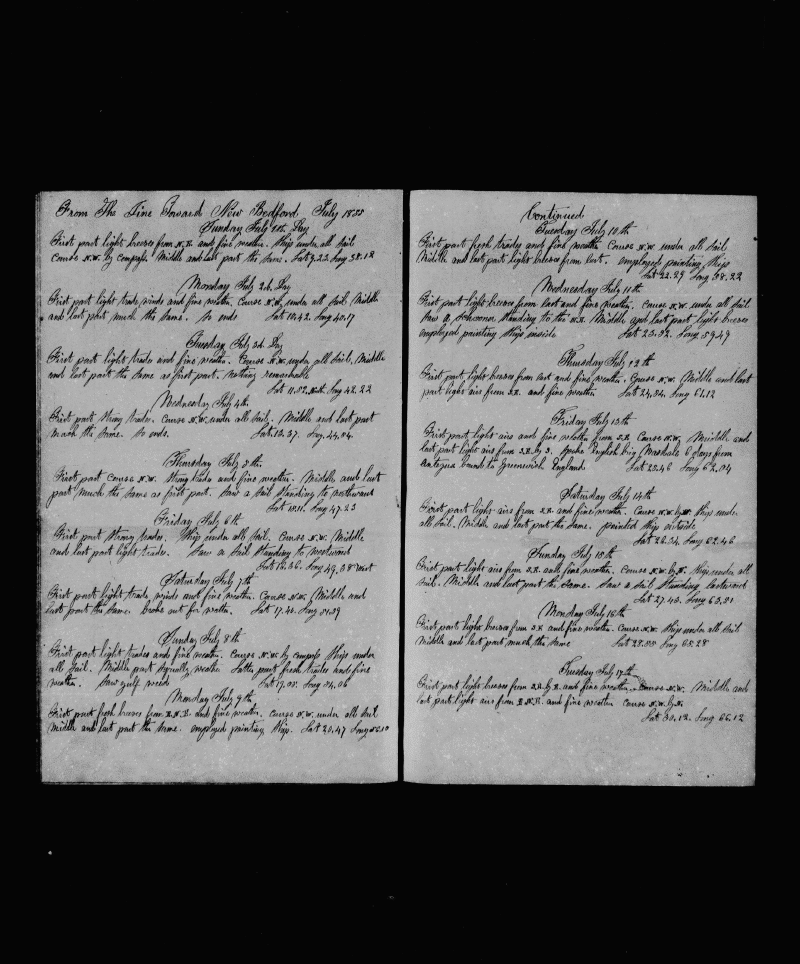 From The Line Toward New Bedford July 1855
Sunday July 1st Day
First part light breezes from N.E. and fine weather. Ship under all sail
course N.W. by compass Middle and last part the same. Lat 9.22 Long 38.18
Monday July 2d. Day
First part light trade winds and fine weather. Course N.W. under all sail. Middle
and last part much the same. So ends Lat 10.42. Long 40.17
Tuesday July 3d. Day
First part light trades and fine weather. Course N.W. under all sail. Middle
and last part the same as first part. nothing remarkable
Lat 11.52. North. Long 42.22
Wednesday July 4th
First part strong trades. Course N.W. under all sail. Middle and last part
much the same. So ends. Lat. 13.37. Long. 44.54.
Thursday July 5th.
First part course N.W. Strong trades and fine weather. Middle and last
part much the same as first part. Saw a sail standing to northward
Long 47.23
Friday July 6th
First part strong trades. Ship under all sail. Course N.W. Middle
and last part light trades. Saw a sail standing to westward
Lat 16.36. Long 49.38 West
Saturday July 7th
First part light trade winds and fine weather. Course N.W. Middle and
last part the same. broke out for water. Lat 17.40. Long 51.39
Sunday July 8th
First part light trades and fine weather. Course N.W. by compass Ship under
all sail. Middle part squally weather Latter part fresh trades and fine
weather. Saw gulf weed Lat 19.05. Long 54.06
Monday July 9th
First part fresh breezes from E.N.E. and fine weather. course N.W. under all sail
middle and last part the same. employed painting ship. Lat 20.47 Long 56.10
Continued
Tuesday July 10th
First part fresh trades and fine weather Course N.W. under all sail
Middle and last part light breezes from East. employed painting ship
Lat 22.29 Long 58.22
Wednesday July 11th
First part light breezes from East and fine weather. Course N.W. under all sail
saw a schooner standing to the N.E. Middle and last part light breezes
employed painting ship inside Lat 23.32. Long 59.49
Thursday July 12th
First part light breezes from East and fine weather. Course N.W. Middle and last
part light airs from S.E. and fine weather Lat 24.34. Long 61.12
Friday July 13th
First part light airs and fine weather from S.E. Course N.W. Middle and
last part light airs from S.E. by S. Spoke English brig 6 days from
Antegua bound to Greenwich England. Lat 25.46 Long 62.04
Saturday July 14th
First part light airs from S.E. and fine weather. Course N.W. by N. Ship under
all sail. Middle and last part the same. painted ship outside
Lat 26.34. Long 62.46
Sunday July 15th
First part light airs from S.E. and fine weather. Course N.W. by N. Ship under all
sail. Middle and last part the same. Saw a sail standing Eastward
Lat 27.43. Long 63.51
Monday July 16th
First part light breezes from S.E. and fine weather. Course N.W. Ship under all sail
Middle and last part much the same Lat 28.55 Long 65.28
Tuesday July 17th
First part light breezes from S.E. by E. and fine weather. Course N.W. Middle and
last part light airs from E.N.E. and fine weather course N.W. by N.
Lat 30.12. Long 66.12